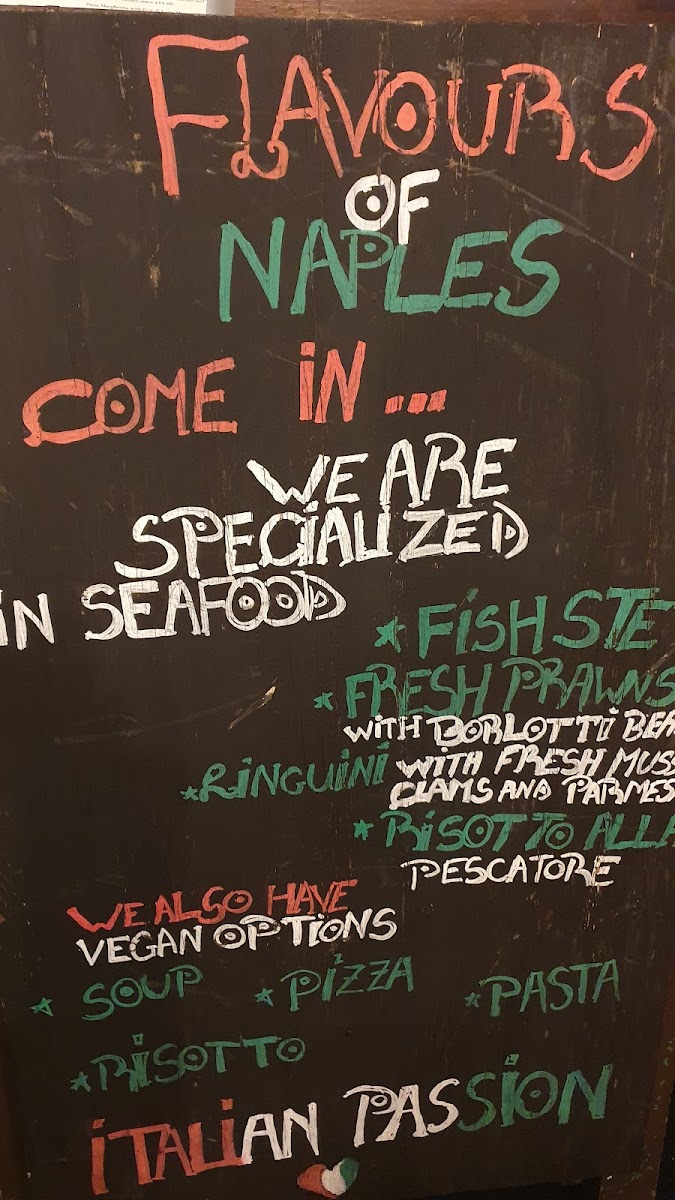 FLAVOURS
OF
NAPLES
COME IN...
WE ARE
SPECIALIZED
IN SEAFOOD
* FISH STE
* FRESH PRAWNS
WITH BORLOTTI BEA
* RINGUINI WITH FRESH MUSS
CLAMS AND PARMES
* RISOTTO ALLA
PESCATORE
WE ALSO HAVE
VEGAN OPTIONS
* SOUP * PIZZA * PASTA
* RISOTTO
ITALIAN PASSION